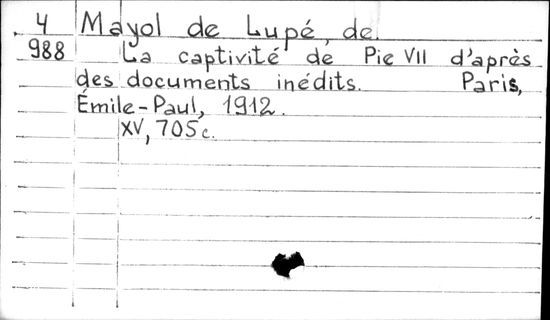 4 Mayol de Lupé, de.
988 La captivité de Pie VII d'après
des documents inédits. Paris,
Émile-Paul, 1912.
XV, 705c.